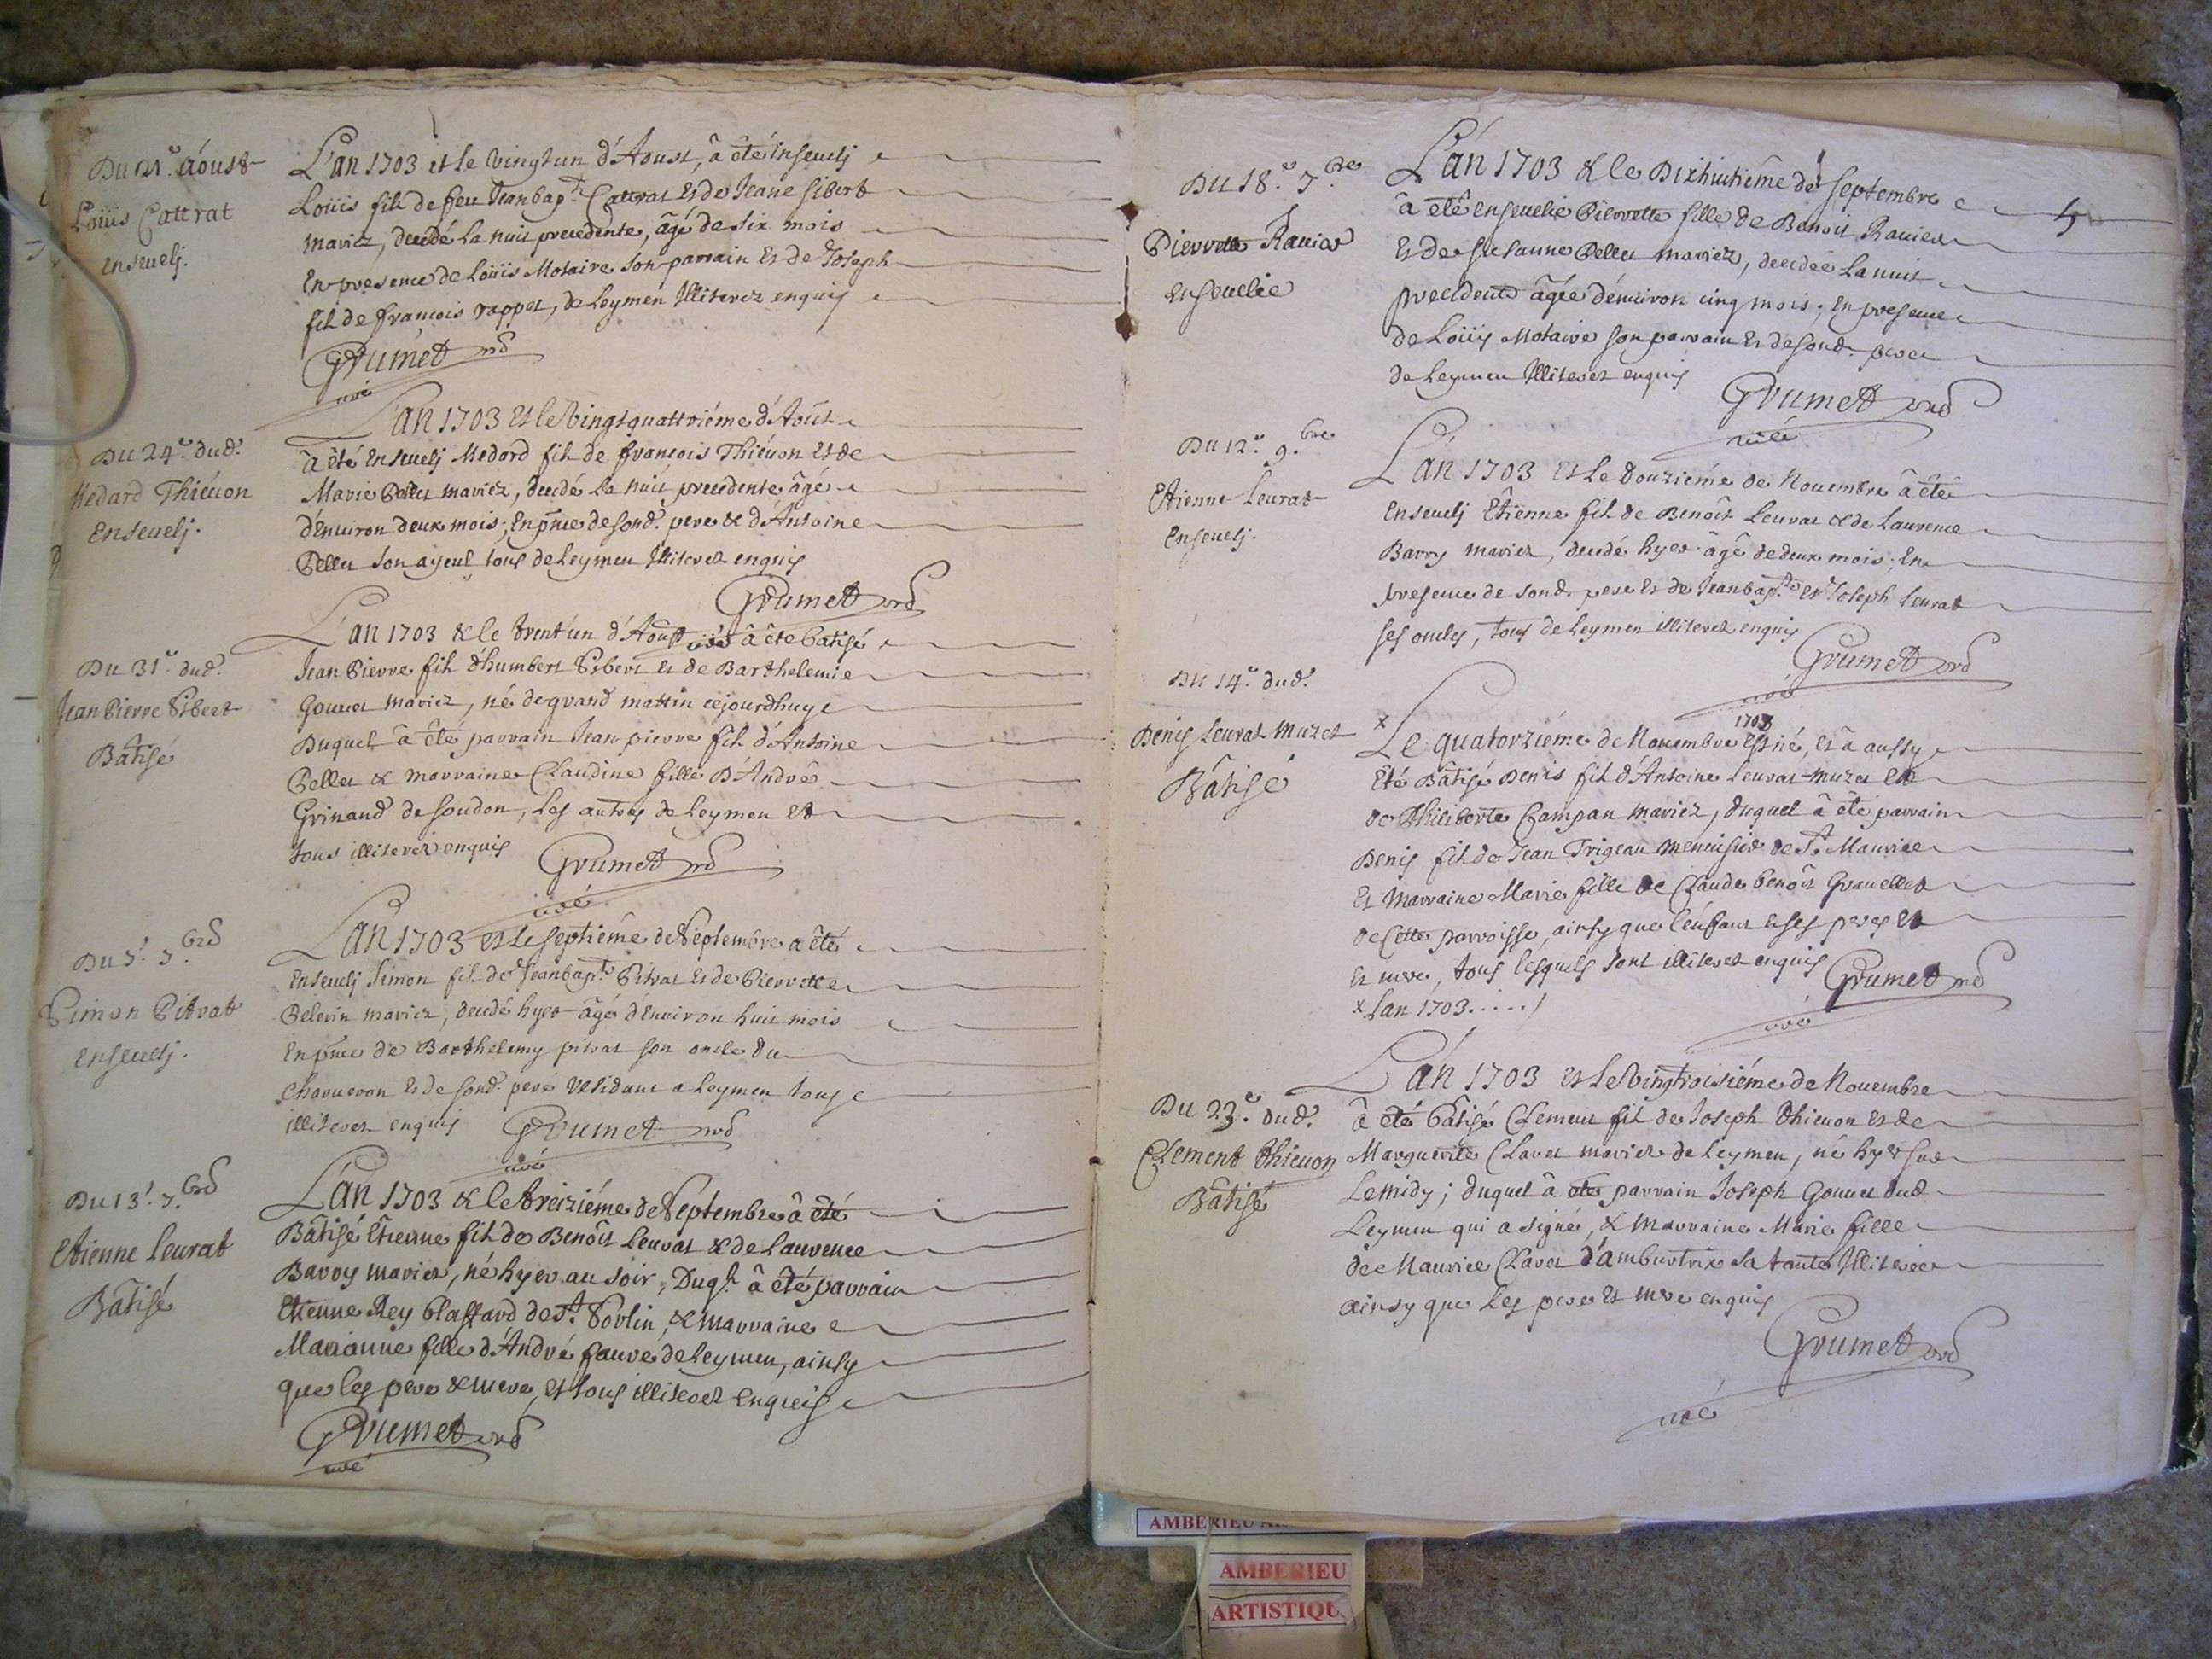 Du 21.e Aoust
Loüis Cattrat
enseuelj.
L'an 1703 et le vingtun d'Aoust, à été Enseuelj
Loüis fils de feu Jeanbap.te Cattrat et de Jeane Sibert
mariez, decedé la nuit precedente, âgé de six mois
En presence de Loüis Motaire son parrain et de Joseph
fils de francois rappet, de Leymen Illiterez enquis
Grumet
curé
Du 24.e dud.
Medard Thieuon
Enseuelj.
L'an 1703 et le Vingtquattriéme d'Aoust
à été Enseuelj Medard fils de francois Thieuon et de
Marie Pellet mariez, decedé la nuit precedente âgé
d'Enuiron deux mois; En pnce de sond. pere & d'Antoine
Pellet son ayeul tous de Leymen Illiterez enquis
Grumet
curé
Du 31.e dud.
Jean Pierre Sibert
Bâtisé
L'an 1703 & le trent'un d'Aoust à été batisé
Jean Pierre fils d'humbert Sibert et de Barthelemie
Gouuet mariez, né de grand mattin cejourdhuy
Duquel à été parrain Jean pierre fils d'Antoine
Pellet & marraine Claudine fille D'André
Grinand de Soudon, Les autres de Leymen et
tous illiterez enquis
Grumet
curé
Du 7.e 7.bre
Simon Pitrat
enseuelj.
L'an 1703 et le septiéme de Septembre a été
Enseuelj Simon fils de Jeanbap.te Pitrat et de Pierrette
Pelerin mariez, decedé hyer âgé d'Enuiron huit mois
En pnce de Barthelemy pitrat son oncle du
Charueron et de sond. pere residant a Leymen tous
illiterez enquis
Grumet
curé
Du 13.e 7.bre
Etienne Leurat
Bâtisé
L'an 1703 & le treiziéme de Septembre à été
Bâtisé Etienne fils de Benoît Leurat & de Laurence
Barry mariez, né hyer au soir, Duq.l à été parrain
Etienne Rey Plassard de St. Sorlin, & marraine
Marianne fille d'André fauré de Leymen, ainsy
que les pere & mere, et tous illiterez Enquis
Grumet
curé
Du 18.e 7.bre
Pierrette Rauier
enseuelie
5
L'an 1703 & le Dixhuitiéme de Septembre
à été enseuelie Pierrette fille de Benoit Rauier
et de Susanne Pellet mariez, decedée la nuit
precedente âgée d'enuiron cinq mois; En presence
de Loüis Motaire son parrain et de sond. pere
de Leymen Illiterez enquis
Grumet
curé
Du 12.e 9.bre
Etienne Leurat
enseuelj.
L'an 1703 et Le Douziéme de Nouembre à été
Enseuelj Etienne fils de Benoît Leurat & de Laurence
Barry mariez, decedé hyer âgé de deux mois; En
presence de sond. pere et de Jeanbap.te et Joseph Leurat
ses oncles, tous de Leymen illiterez enquis
Grumet
curé
Du 14.e dud.
Denis Leurat Muzet
Bâtisé
1703
x Le quatorziéme de Nouembre est né, et à aussy
Eté Bâtisé Denis fils d'Antoine Leurat-Muzet et
de Philiberte Campan mariez, duquel à été parrain
Denis fils de Jean Trigeau menuisier de St. Maurice
et marraine Marie fille de Claude benoît Grauellet
de Cette parroisse, ainsy que l'enfant et ses peres et
et mere, tous lesquels sont illiterez enquis
x Lan 1703 . . . . . /
Grumet
curé
Du 23.e dud.
Clement Thieuon
Bâtisé
L'an 1703 et Le Vingtroisiéme de Nouembre
à été bâtisé Clement fils de Joseph Thieuon et de
Marguerite Clauet mariez de Leymen, né hyer sur
Le midy; duquel à été parrain Joseph Gouuet dud.
Leymen qui a signé, & marraine Marie fille
de Maurice Clauet d'amburtrix sa tante Illiterée
ainsy que les pere et mere enquis
Grumet
curé
AMBERIEU
AMBERIEU
ARTISTIQU